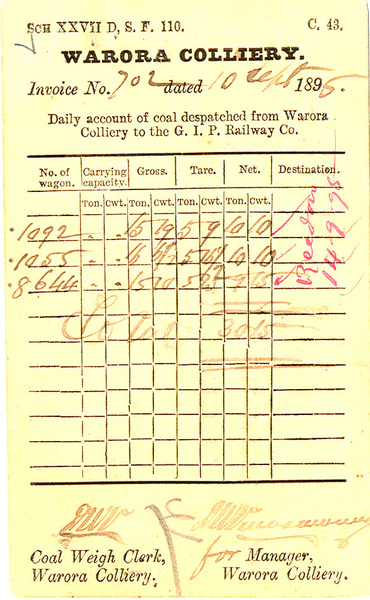 SCH XXVII D, S. F. 110. C. 43.
WARORA COLLIERY.
Invoice No. 702 dated 10 Sept 1895.
Daily account of coal despatched from Warora
Colliery to the G. I. P. Railway Co.
No. of wagon. Carrying capacity. Gross. Tare. Net. Destination.
Ton. Cwt. Ton. Cwt. Ton. Cwt. Ton. Cwt.
1092 " " 15 19 5 9 10 10
1055 " " 10 10
8644 " " 15 10 5 9 15
Total 30 15
14-9-95
Coal Weigh Clerk, for Manager,
Warora Colliery. Warora Colliery.